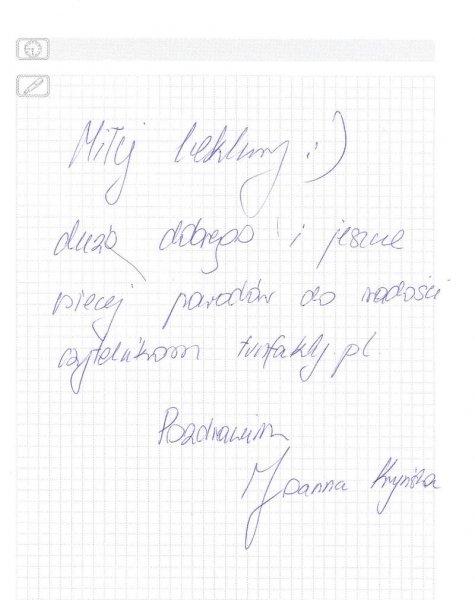 Miłej lektury :)
dużo dobrego i jeszcze
więcej powodów do radości
czytelnikom tvnfakty.pl
Pozdrawiam
Joanna